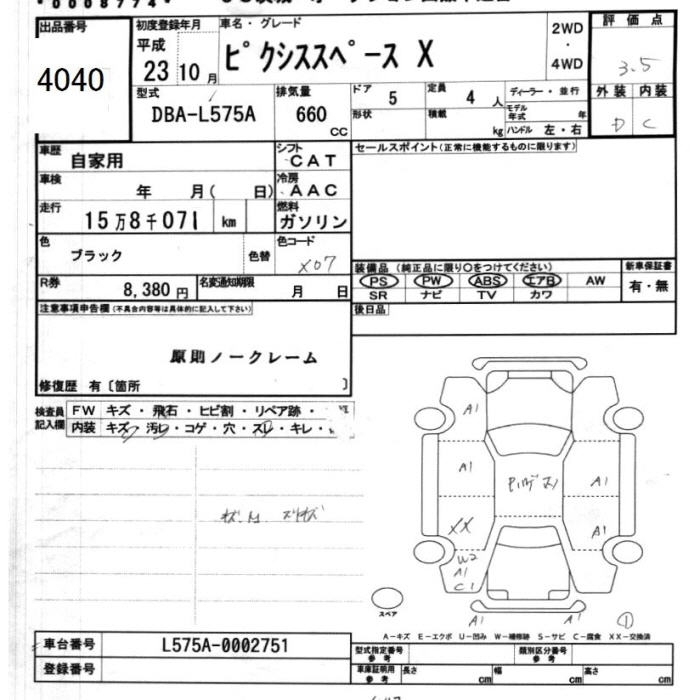 出品番号
4040
初度登録年月
平成
23 10 月
車名・グレード
ピクシススペース X
2WD
・
4WD
評価点
3.5
外装 内装
D C
型式
DBA-L575A
排気量
660
CC
ドア
5
形状
定員
4 人
積載
kg
ディーラー・並行
モデル
年式
年
ハンドル 左・右
車歴
自家用
シフト
CAT
車検
年 月( 日)
冷房
AAC
走行
15万8千071 km
燃料
ガソリン
色
ブラック
色替
色コード
X07
セールスポイント(正常に機能するものに限ります)
装備品 (純正品に限り○をつけてください)
PS PW ABS エアB AW
SR ナビ TV カワ
新車保証書
有・無
R券
8,380 円
名変通知期限
月 日
後日品
注意事項申告欄(不具合内容等は具体的に記入して下さい)
原則ノークレーム
修復歴 有〔箇所 〕
検査員
記入欄
FW キズ・飛石・ヒビ割・リペア跡・
内装 キズ・汚レ・コゲ・穴・スレ・キレ・
A1
A1
A1
A1
XX
W2
A1
C1
A1
A1
①
スペア
A-キズ E-エクボ U-凹み W-補修跡 S-サビ C-腐食 XX-交換済
車台番号
L575A-0002751
登録番号
型式指定番号
参考
類別区分番号
参考
車庫証明用
参考
長さ cm
幅 cm
高さ cm